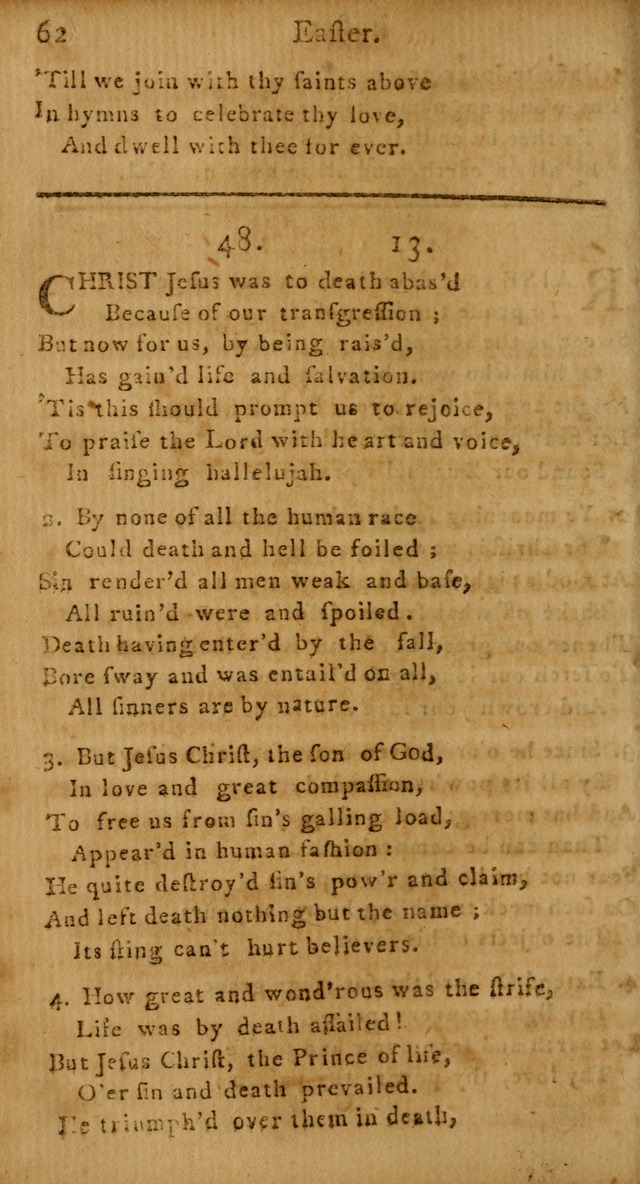 62 Eaſter.
'Till we join with thy ſaints above
In hymns to celebrate thy love,
And dwell with thee for ever.
48. 13.
CHRIST Jeſus was to death abas'd
Becauſe of our tranſgreſſion ;
But now for us, by being rais'd,
Has gain'd life and ſalvation.
'Tis this ſhould prompt us to rejoice,
To praiſe the Lord with heart and voice,
In ſinging hallelujah.
2. By none of all the human race
Could death and hell be foiled ;
Sin render'd all men weak and baſe,
All ruin'd were and ſpoiled.
Death having enter'd by the fall,
Bore ſway and was entail'd on all,
All ſinners are by nature.
3. But Jeſus Chriſt, the ſon of God,
In love and great compaſſion,
To free us from ſin's galling load,
Appear'd in human faſhion :
He quite deſtroy'd ſin's pow'r and claim,
And left death nothing but the name ;
Its ſting can't hurt believers.
4. How great and wond'rous was the ſtrife,
Life was by death aſſailed!
But Jeſus Chriſt, the Prince of life,
O'er ſin and death prevailed.
He triumph'd over them in death,